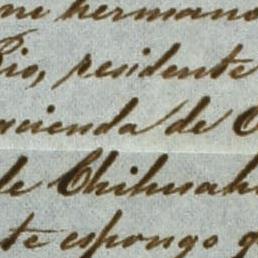 mi hermano
Rio, residente
acienda de O
de Chihuah
te espongo q